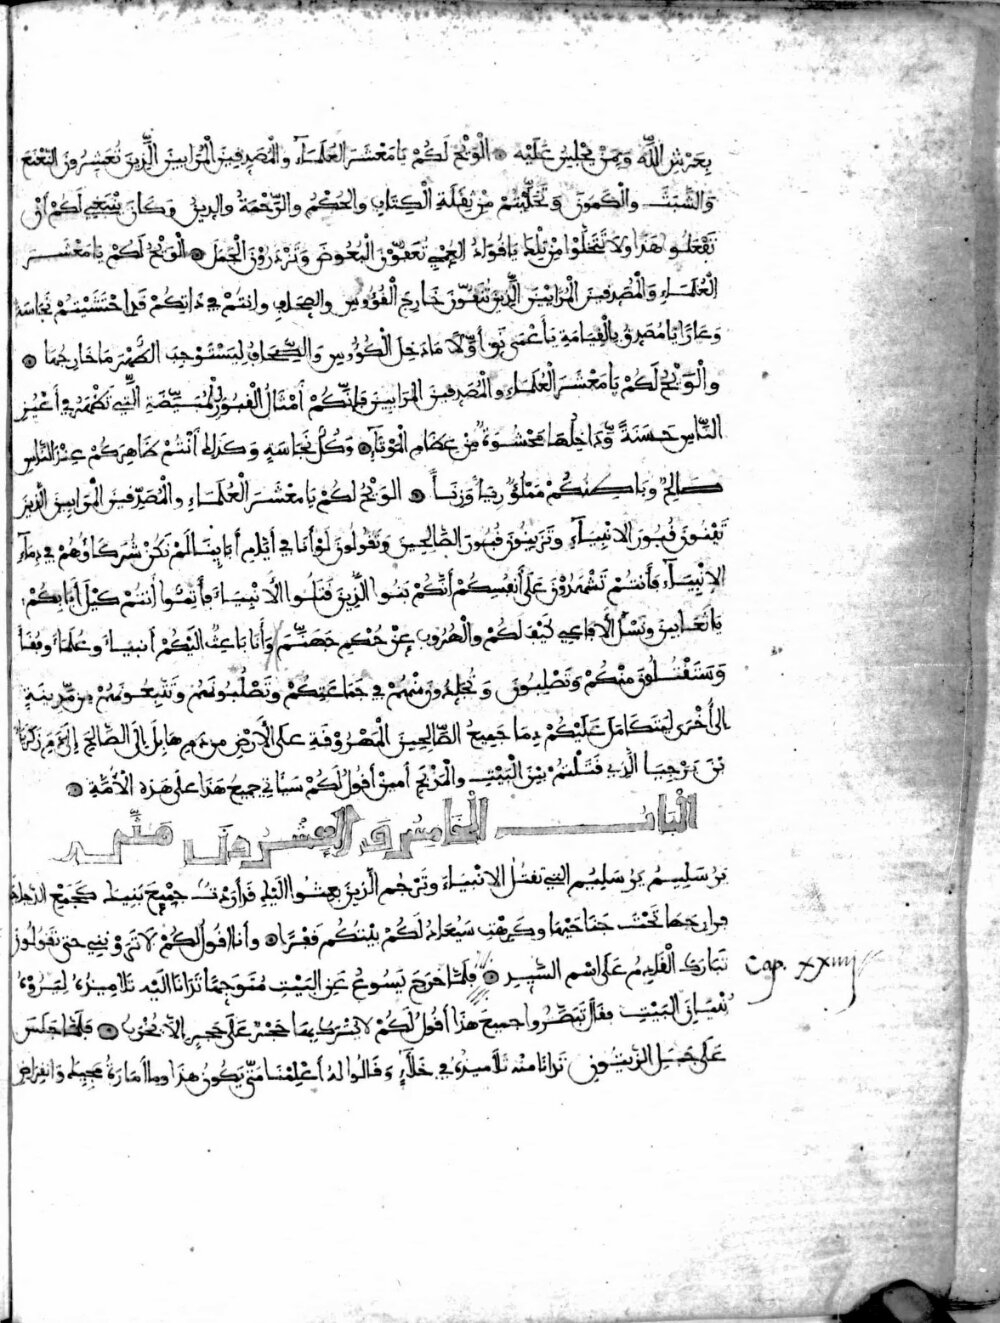 بِعَرْشِ اللَّهِ وَبِمَنْ يَجْلِسُ عَلَيْهِ ۞ الْوَيْحُ لَكُمْ يَا مَعْشَرَ الْعُلَمَاءِ وَالْمُصَدِّقِينَ الْمُرَايِينَ الَّذِينَ تُعَشِّرُونَ النَّعْنَعَ
وَالشَّبَثَ وَالْكَمُّونَ وَتَخَلَّيْتُمْ مِنْ ثِقَلَةِ الْكِتَابِ وَالْحُكْمُ وَالرَّحْمَةُ وَالدِّينُ وَكَانَ يَنْبَغِي لَكُمْ أَنْ
تَفْعَلُوا هَذَا وَلَا تَتَخَلَّوْا مِنْ تِلْكَ يَا قُوَّادَ الْعُمْيِ تَعَفُّونَ الْبَعُوضَ وَتَزْدَرِدُونَ الْجَمَلَ ۞ الْوَيْحُ لَكُمْ يَا مَعْشَرَ
الْعُلَمَاءِ وَالْمُصَدِّقِينَ الْمُرَايِينَ الَّذِينَ تُنَقُّونَ خَارِجَ الْكُؤُوسِ وَالصِّحَافِ وَأَنْتُمْ فِي ذَاتِكُمْ قَدِ احْتَشَيْتُمْ نَجَاسَةً
وَعَارًا يَا مُصَدِّقُ بِالْقِيَامَةِ يَا أَعْمَى نَقِّ أَوَّلًا مَا دَخِلَ الْكُؤُوسِ وَالصِّحَافِ لِيَسْتَوْجِبَ الطُّهْرَ مَا خَارِجُهَا ۞
وَالْوَيْحُ لَكُمْ يَا مَعْشَرَ الْعُلَمَاءِ وَالْمُصَدِّقِينَ الْمُرَايِينَ فَإِنَّكُمْ أَمْثَالُ الْقُبُورِ الْمُبَيَّضَةِ الَّتِي تَظْهَرُ فِي أَعْيُنِ
النَّاسِ حَسَنَةً وَدَاخِلُهَا مَحْشُوَّةٌ مِنْ عِظَامِ الْمَوْتَى ۞ وَكُلُّ نَجَاسَةٍ وَكَذَلِكَ أَنْتُمْ ظَاهِرُكُمْ عِنْدَ النَّاسِ
صَالِحٌ وَبَاطِنُكُمْ مَمْلُوٌّ رِيَاءً وَزِنَاءً ۞ الْوَيْحُ لَكُمْ يَا مَعْشَرَ الْعُلَمَاءِ وَالْمُصَدِّقِينَ الْمُرَايِينَ الَّذِينَ
تَبْنُونَ قُبُورَ الْأَنْبِيَاءِ وَتُزَيِّنُونَ قُبُورَ الصَّالِحِينَ وَتَقُولُونَ لَوْ أَنَّا فِي أَيَّامِ أَبَائِنَا لَمْ نَكُنْ شُرَكَاؤُهُمْ فِي دِمَاءِ
الْأَنْبِيَاءِ فَأَنْتُمْ تَشْهَدُونَ عَلَى أَنْفُسِكُمْ أَنَّكُمْ بَنُوا الَّذِينَ قَتَلُوا الْأَنْبِيَاءَ فَأَتِمُّوا أَنْتُمْ كَيْلَ أَبَائِكُمْ
يَا ثَعَابِينَ وَنَسْلَ الْأَفَاعِي كَيْفَ لَكُمْ وَالْهُرُوبِ عَنْ حُكْمِ جَهَنَّمَ وَأَنَا بَاعِثٌ إِلَيْكُمْ أَنْبِيَاءَ وَعُلَمَاءَ
وَسَتَقْتُلُونَ مِنْكُمْ وَتَصْلِبُونَ وَتَجْلِدُونَ مِنْهُمْ فِي جَمَاعَتِكُمْ وَتَصْلُبُونَهُمْ وَتَتْبَعُونَهُمْ مِنْ مَدِينَةٍ
إِلَى أُخْرَى لِيَتَكَامَلَ عَلَيْكُمْ دِمَا جَمِيعُ الصَّالِحِينَ الْمُهْرَوْقَةِ عَلَى الْأَرْضِ مِنْ دَمِ هَابِلَ الصَّالِحِ إِلَى دَمِ زَكَرِيَّاءَ
بْنِ بَرَخِيَا الَّذِي قَتَلْتُمْ بَيْنَ الْبَيْتِ وَالْمَذْبَحِ أَمِينَ أَقُولُ لَكُمْ سَيَأْتِي جَمِيعُ هَذَا عَلَى هَذِهِ الْأُمَّةِ ۞
الْبَابُ الْخَامِسُ وَالْعِشْرُونَ مَتَّى
يَرُسَلِيمُ يَرُسَلِيمُ الَّتِي تَقْتُلُ الْأَنْبِيَاءَ وَتَرْجُمُ الَّذِينَ بُعِثُوا إِلَيْهَا قَدْ أَرَدْتُ جَمِيعَ بَنِيكَ كَجَمْعِ الدَّجَاجَةِ
فَرَارِجَهَا تَحْتَ جَنَاحَيْهَا وَكَرِهْتِ سَيُعَادُ لَكُمْ بَيْتُكُمْ قَفْرًا ۞ وَأَنَا أَقُولُ لَكُمْ لَا تَرَوْنَنِي حَتَّى تَقُولُونَ
تَبَارَكَ الْقَادِمُ عَلَى اسْمِ السَّيِّدِ ۞ فَلَمَّا خَرَجَ يَسُوعُ عَنِ الْبَيْتِ مُتَوَجِّهًا تَرَانَا إِلَيْهِ تَلَامِيذُهُ لِيُرُوهُ
بُنْيَانَ الْبَيْتِ فَقَالَ تُبْصِرُوا جَمِيعَ هَذَا أَقُولُ لَكُمْ لَا يُتْرَكُ بِهَا حَجَرٌ عَلَى حَجَرٍ إِلَّا يُخْرَبُ ۞ فَلَمَّا جَلَسَ
عَلَى جَبَلِ الزَّيْتُونِ تَرَانَا مِنْهُ تَلَامِيذُهُ فِي خَلَاءٍ وَقَالُوا لَهُ أَعْلِمْنَا مَتَى يَكُونُ هَذَا وَمَا أَمَارَةُ مَجِيئِكَ وَانْقِرَاضِ
Cap. XXIIII